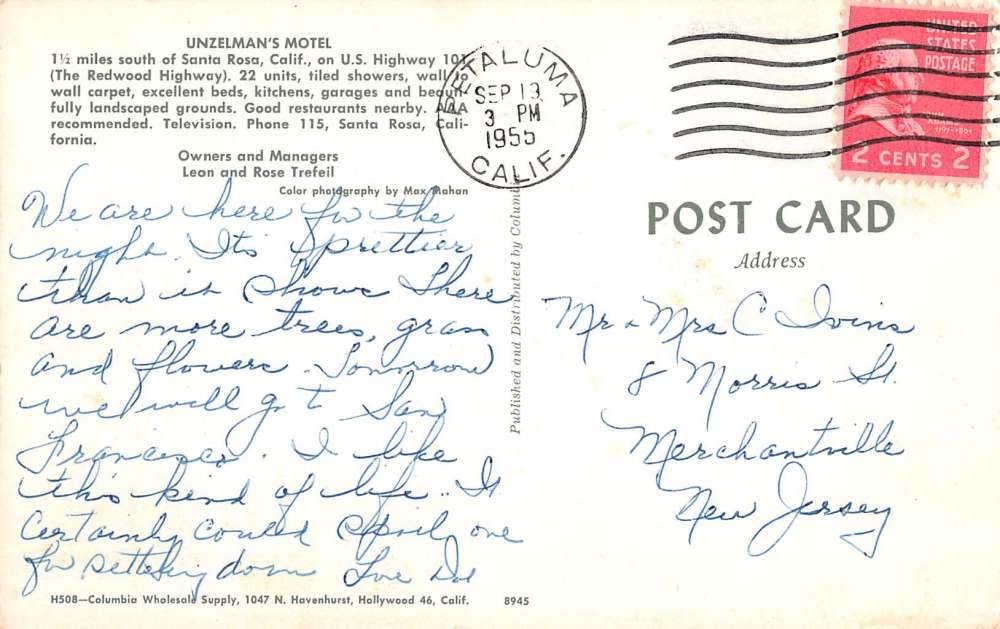 UNZELMAN'S MOTEL
1½ miles south of Santa Rosa, Calif., on U.S. Highway 101
(The Redwood Highway). 22 units, tiled showers, wall to
wall carpet, excellent beds, kitchens, garages and beauti-
fully landscaped grounds. Good restaurants nearby. AAA
recommended. Television. Phone 115, Santa Rosa, Cali-
fornia.
Owners and Managers
Leon and Rose Trefeil
Color photography by Max Mahan
We are here for the
night. Its prettier
than it shows There
are more trees, grass
and flowers. Tommrow
we will go to San
Francisco. I like
this kind of life. It
certainly could spoil one
for setteling down Love Dot
H508—Columbia Wholesale Supply, 1047 N. Havenhurst, Hollywood 46, Calif. 8945
Published and Distributed by Columb
PETALUMA
SEP 13
3 PM
1955
CALIF.
UNITED
STATES
POSTAGE
2 CENTS 2
POST CARD
Address
Mr & Mrs C Ivins
8 Morris St.
Merchantville
New Jersey